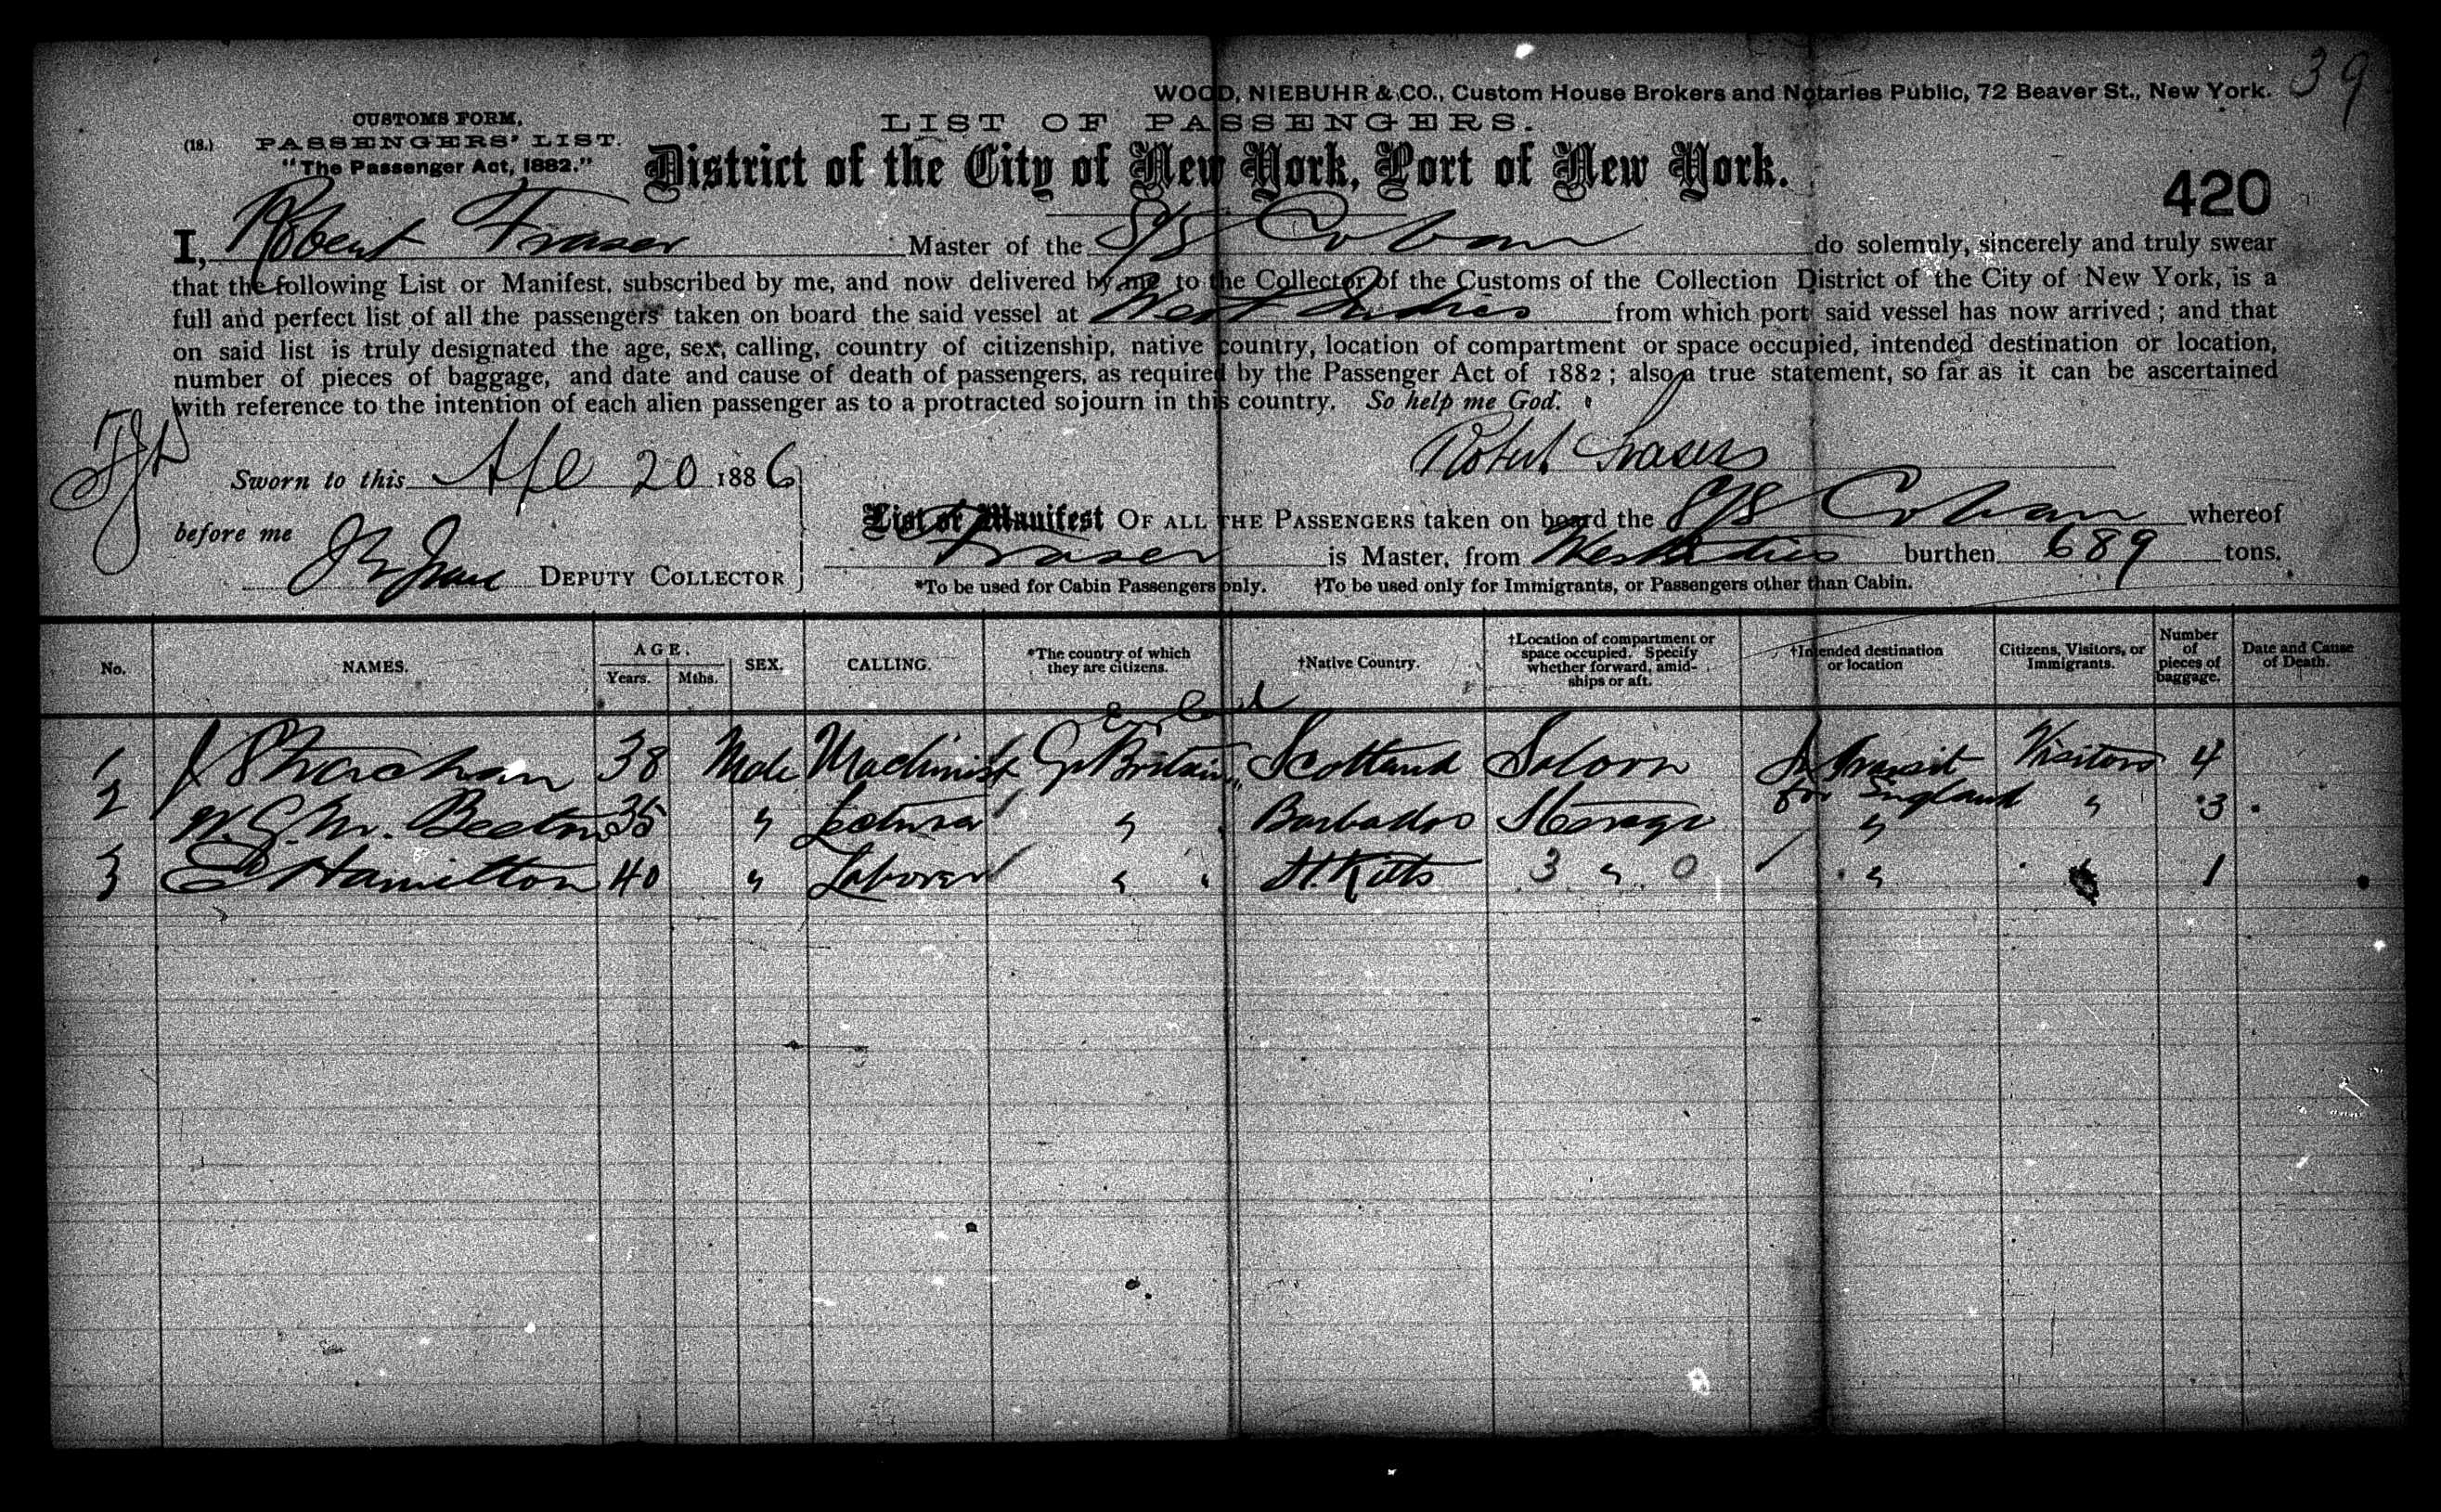 39
WOOD, NIEBUHR & CO., Custom House Brokers and Notaries Public, 72 Beaver St., New York.
CUSTOMS FORM.
LIST OF PASSENGERS.
(18.) PASSENGERS' LIST.
"The Passenger Act, 1882."
District of the City of New York, Port of New York.
420
I, Robert Fraser Master of the S/S Coban do solemnly, sincerely and truly swear
that the following List or Manifest, subscribed by me, and now delivered by me to the Collector of the Customs of the Collection District of the City of New York, is a
full and perfect list of all the passengers taken on board the said vessel at West Indies from which port said vessel has now arrived; and that
on said list is truly designated the age, sex, calling, country of citizenship, native country, location of compartment or space occupied, intended destination or location,
number of pieces of baggage, and date and cause of death of passengers, as required by the Passenger Act of 1882; also a true statement, so far as it can be ascertained
with reference to the intention of each alien passenger as to a protracted sojourn in this country. So help me God.
Robert Fraser
Sworn to this Apl 20 1886
List or Manifest OF ALL THE PASSENGERS taken on board the S/S Coban whereof
before me
Fraser is Master, from West Indies burthen 689 tons.
DEPUTY COLLECTOR
*To be used for Cabin Passengers only. †To be used only for Immigrants, or Passengers other than Cabin.
No. NAMES. AGE. Years. Mths. SEX. CALLING. *The country of which they are citizens. †Native Country. †Location of compartment or space occupied. Specify whether forward, amidships or aft. †Intended destination or location Citizens, Visitors, or Immigrants. Number of pieces of baggage. Date and Cause of Death.
England
1 J Strachan 38 Male Machinist Gt Britain Scotland Saloon In Transit Visitors 4
for England
2 W. G. M. Beeton 35 " Lecturer " Barbados Steerage " " 3
3 Hamilton 40 " Laborer " St. Kitts 3 " 0 " 1